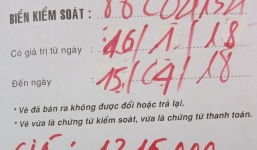 BIỂN KIỂM SOÁT :
Có giá trị từ ngày : 16/1/18
Đến ngày : 15/04/18
* Vé đã bán ra không được đổi hoặc trả lại.
* Vé vừa là chứng từ kiểm soát, vừa là chứng từ thanh toán.